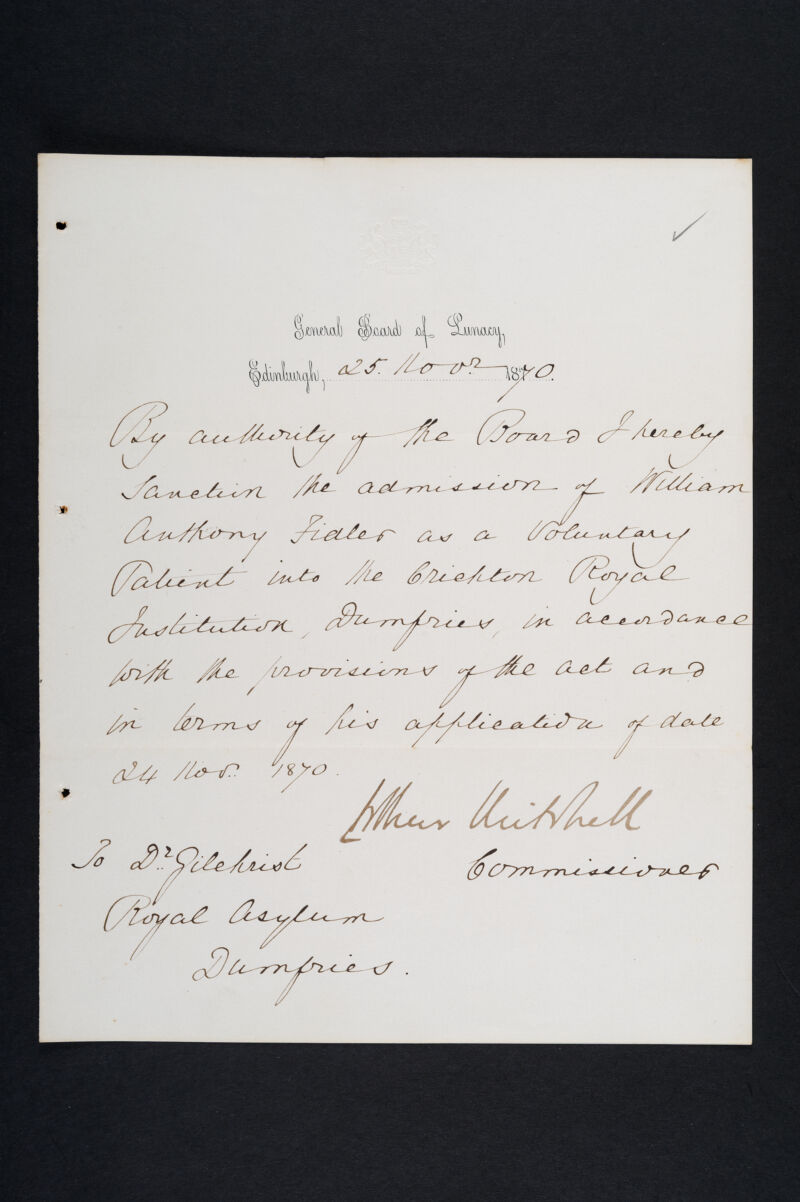 General Board of Lunacy,
Edinburgh, 25. Novr 1870.
By authority of the Board I hereby
Sanction the admission of William
Anthony Fidler as a Voluntary
Patient into the Crichton Royal
Institution, Dumfries, in accordance
with the provisions of the act and
in terms of his application of date
24 Nov. 1870.
Arthur Mitchell
Commissioner
To Dr. Gilchrist
Royal Asylum
Dumfries.